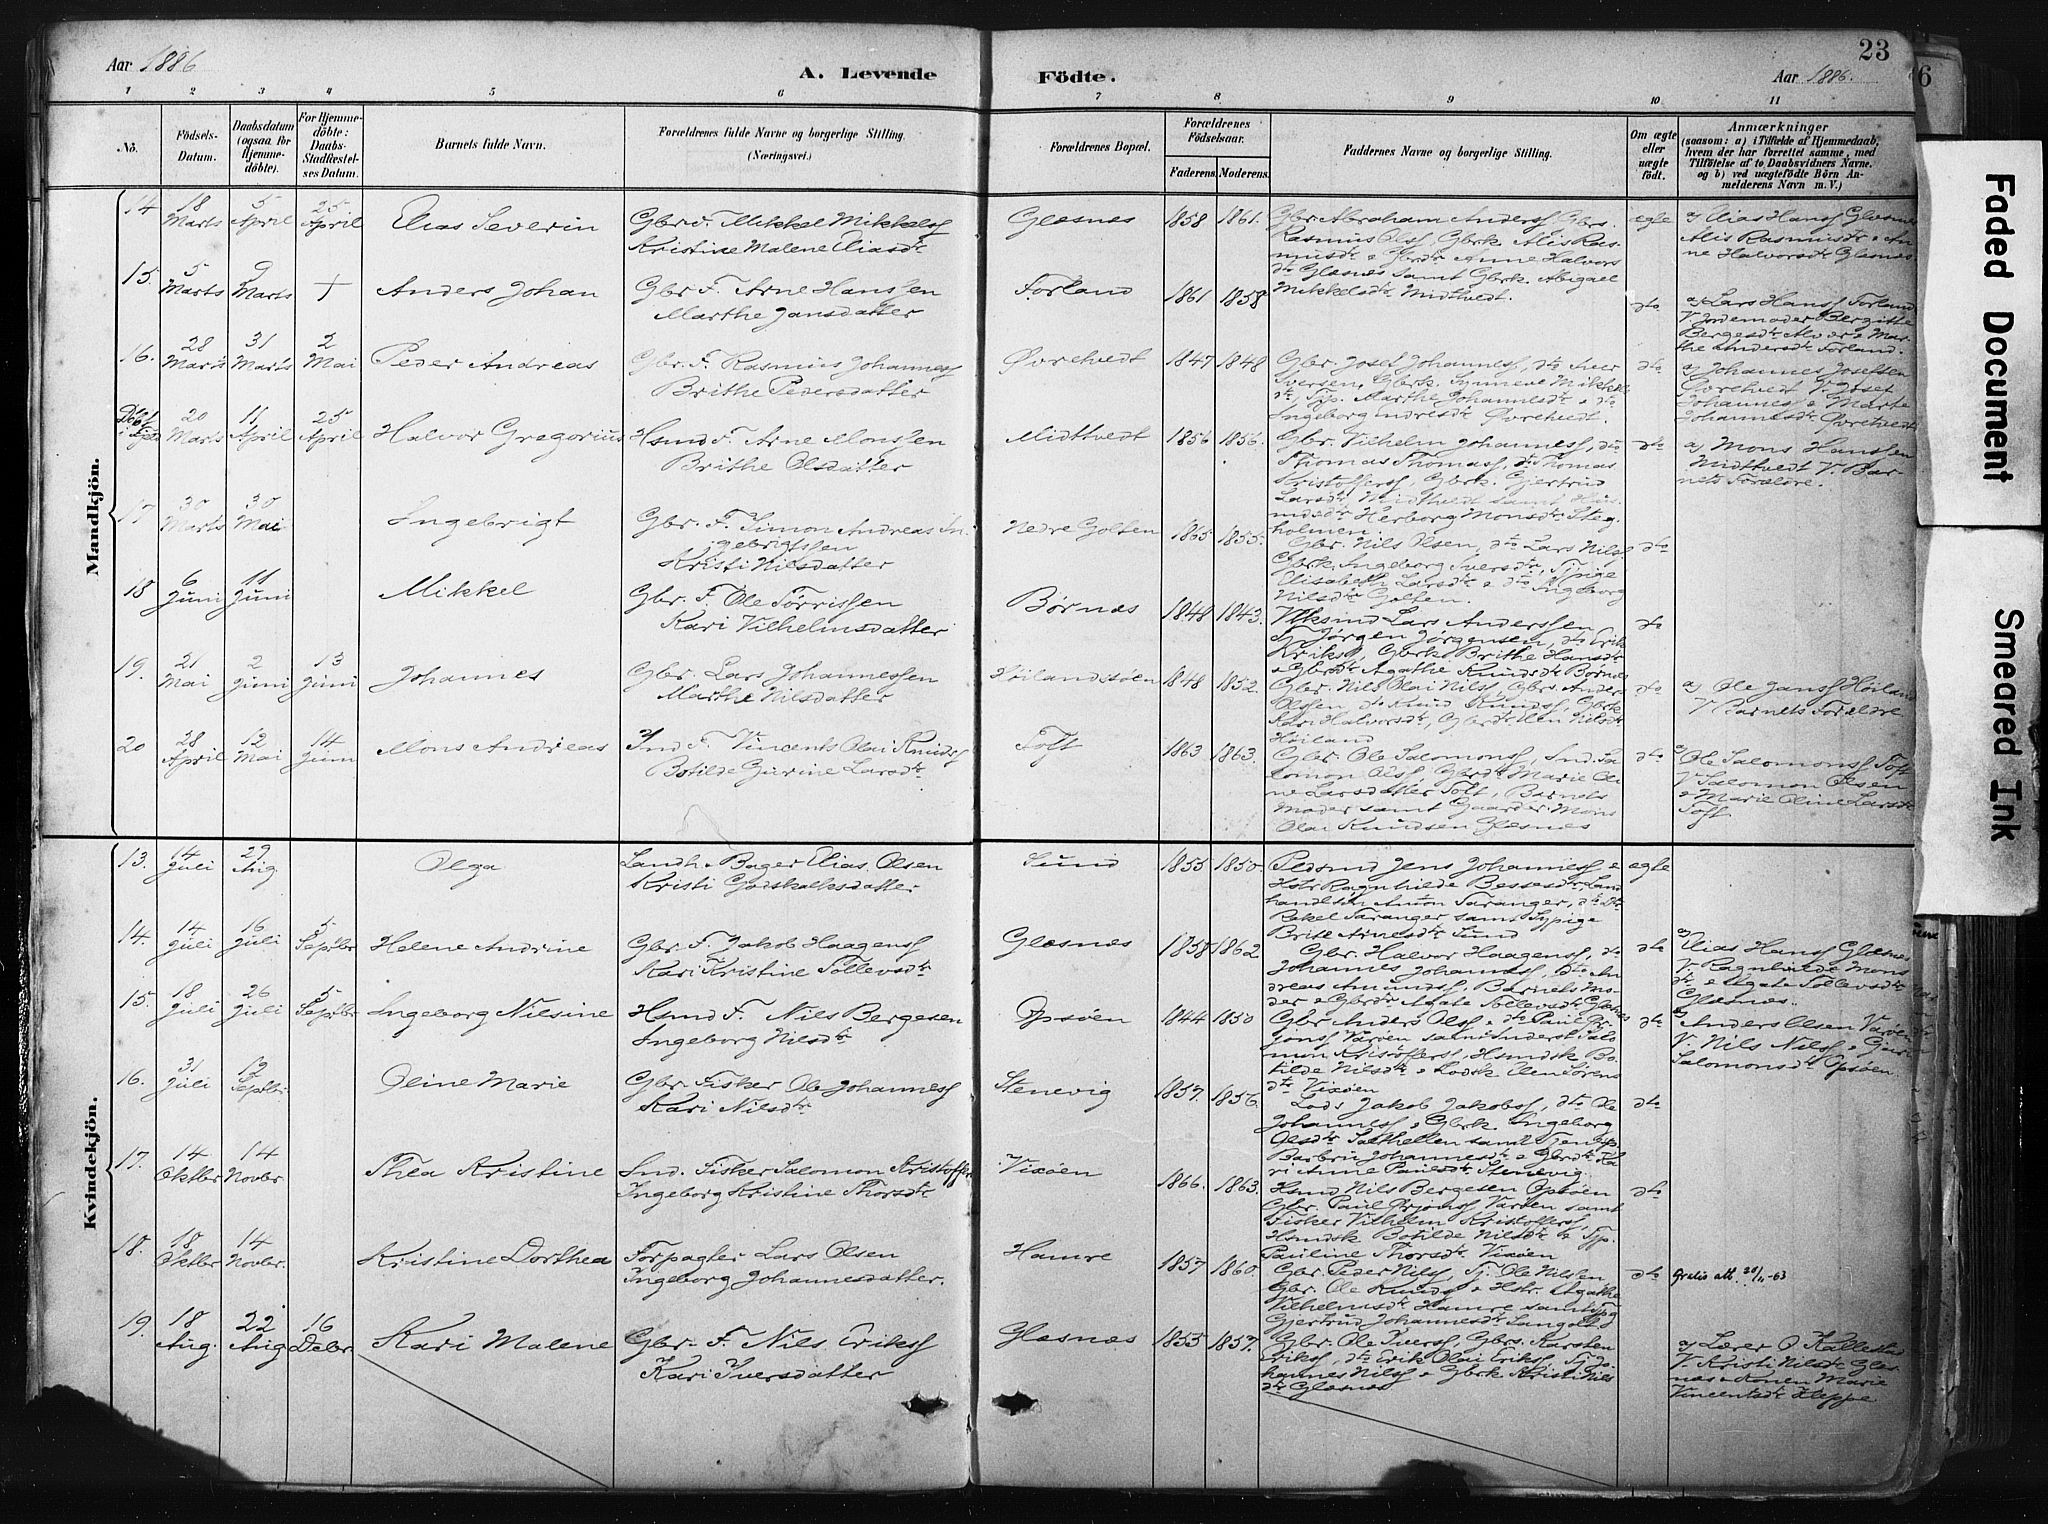 Aar 1886
A. Levende Födte.
Aar 1886.
23
6
1 2 3 4 5 6 7 8 9 10 11
No.
Födsels-Datum.
Daabsdatum (ogsaa for Hjemmedöbte).
For Hjemmedöbte: Daabs-Stadfæstelses Datum.
Barnets fulde Navn.
Forældrenes fulde Navne og borgerlige Stilling. (Næringsvei.)
Forældrenes Bopæl.
Forældrenes Födselsaar.
Faderens. Moderens.
Faddernes Navne og borgerlige Stilling.
Om ægte eller uægte födt.
Anmærkninger
(saasom: a) i Tilfælde af Hjemmedaab, hvem der har forrettet samme, med Tilföielse af to Daabsvidners Navne. og b) ved uægtefödte Börn Anmelderens Navn m. V.)
Mandkjön.
14 18 Marts 5 April 25 April Elias Severin Gbr. F. Mikkel Mikkels
Kristine Malene Eliasdr
Glesnes 1858 1861. Gbr. Abraham Anders, Gbr.
Rasmus Ols, Gbrk. Alis Ras-
musdr & Gbrdr Anne Halvors
dr Glesnes samt Gbrk. Abigael
Mikkelsdr Midtvedt.
ægte a) Elias Hans Glesnes
Alis Rasmusdr & An-
ne Halvorsdr Glesnes
15. 5 Marts 9 Marts + Anders Johan Gbr. F. Arne Hanssen
Marthe Jansdatter
Forland 1861 1858 dto a) Lars Hans Forland
V. Jordemoder Bergithe
16. 28 Marts 31 Marts 2 Mai Peder Andreas Gbr. F. Rasmus Johannes
Brithe Pedersdatter
Øvretvedt 1847 1848 Gbr. Josef Johannes, dto Iver
Iversen, Gbrk. Synneve Mikkels
dr, Pige Marthe Johannesdr & dto
Ingeborg Endresdr Øvretvedt.
dto a) Johannes Josefsen
Øvretvedt V. Josef
Johannes & Marte
Johannesdr Øvretvedt
20 Marts 11 April 25 April Halvor Gregorius Hsmd F. Arne Monssen
Brithe Olsdatter
Midttvedt 1856 1856. Gbr. Vilhelm Johannes, dto
Thomas Thomas, dto Thomas
Kristoffers, Gbrk. Gjertrud
Larsdr Midttvedt samt Hus-
mdsdr Herborg Monsdr Steg-
holmen.
dto a) Mons Hanssen
Midttvedt V. Bar-
nets Forældre.
17 30 Marts 30 Mai Ingebrigt Gbr. F. Simon Andreas In-
gebrigtssen
Kristi Nilsdatter
Nedre Golten 1865 1855. Gbr. Nils Olsen, dto Lars Nils,
Gbrk. Ingeborg Iversdr, Pige
Elisabeth Larsdr & dto Ingeborg
Nilsdr Golten.
dto
18 6 Juni 11 Juni Mikkel Gbr. F. Ole Tørrissen
Kari Vilhelmsdatter
Børnæs 1848 1843. Lars Anderssen
Jørgen Jørgensen, dto Erik
Eriks, Gbrk. Brithe Hansdr
& Gbrdr Agathe Knudsdr Børnes
dto
19. 21 Mai 2 Juni 13 Juni Johannes Gbr. Lars Johannessen
Marthe Nilsdatter
Høilandssøen 1848 1852. Gbr. Nils Olai Nils, Gbrs. Anders
Olssen, dto Knud Knuds, Gbrk.
Kari Halvorsdr, Gbrdr Elen Nilsdr
Høiland
dto a) Ole Jans Høiland
V. Barnets Forældre
20 28 April 12 Mai 14 Juni Mons Andreas Ind. F. Vincents Olai Knuds
Botilde Gurine Larsdr
Toft 1863 1863. Gbr. Ole Salomons, Ind. Sa-
lomon Ols, Gbrdr Marie Oli-
ne Larsdatter Toft, Barnets
Moder samt Gaarder. Mons
Olai Knudsen Glesnes
dto a) Ole Salomons Toft
V. Salomon Olsen
& Marie Oline Larsdr
Toft
Kvindekjön.
13. 14 Juli 29 Aug Olga Landh. & Bager Elias Olsen
Kristi Godskalksdatter
Sund 1855 1850. Pedsmd Jens Johannes &
Hstr. Ragnhilde Bessesdr, Land-
handler Anton Taranger, dto
Rakel Taranger samt Pige
Brite Arnesdr Sund
ægte
14. 14 Juli 16 Juli 5 Septbr Helene Andrine Gbr. F. Jakob Haagens
Kari Kristine Tollevsdr
Glesnes 1858 1862 Gbr. Halvor Haagens, dto
Johannes Johannes, dto An-
dreas Amunds, Barnets Mo-
der & Gbrdr Agate Tollevsdr Glesnes
dto a) Elias Hans Glesnes
V. Ragnhilde Mons
dr & Agate Tollevsdr
Glesnæs.
15. 18 Juli 26 Juli 5 Septbr Ingeborg Nilsine Hsmd F. Nils Bergesen
Ingeborg Nilsdr
Opsøen 1844 1850 Gbr. Anders Ols & dto Paul Ør-
jons Varøen samt Inderst Salo-
mon Kristoffers, Hsmdsk. Bo-
tilde Nilsdr & Lodsk. Elen Sørens
dr Vixøen
dto a) Anders Olsen Varøen
V. Nils Nils & Guri
Salomonsdr Opsøen
16. 31 Juli 12 Septbr. Oline Marie Gbr. Fisker Ole Johannes
Kari Nilsdr
Stenevig 1857. 1856. Lods Jakob Jakobs, dto Ole
Johannes & Gbrk. Ingeborg
Olsdr samt Tjenep.
Barbru Johannesdr & Gbrdr Ka-
ri Anne Paulsdr Stenevig.
dto
17. 14 Oktbr 14 Novbr. Thea Kristine Ind. Fisker Salomon Kristoffers
Ingeborg Kristine Thorsdr
Vixøen 1866. 1863. Hsmd Nils Bergesen Opsøen
Gbr. Paul Ørjons, Varøen samt
Fisker Vilhelm Kristoffers,
Hsmdsk. Botilde Nilsdr & Pige
Pauline Thorsdr Vixøen
dto
18. 18 Oktbr 14 Novbr. Kristine Dorthea Forpagter Lars Olsen
Ingeborg Johannesdatter.
Hamre 1857 1860. Gbr. Peder Nils, Tj. Ole Nilssen
Gbr. Ole Knuds & Hstr. Agathe
Vilhelmsdr Hamre samt Pige
Gjertrud Johannesdr
dto Gratis att. 28/11-63
19. 18 Aug. 22 Aug 16 Debr Kari Malene Gbr. F. Nils Eriks
Kari Iversdatter
Glesnæs 1855 1857. Gbr. Ole Ivers, Gbrs. Karsten
Eriks, dto Erik Olai Eriks, Tj. Jo-
hannes Nils & Gbrk. Kristi Nils
dr Glesnes
a) Lærer O. Kallestad
V. Kristi Nilsdr Gles-
nes & Konen Marie
Vincentsdr Steppe
Faded Document
Smeared Ink